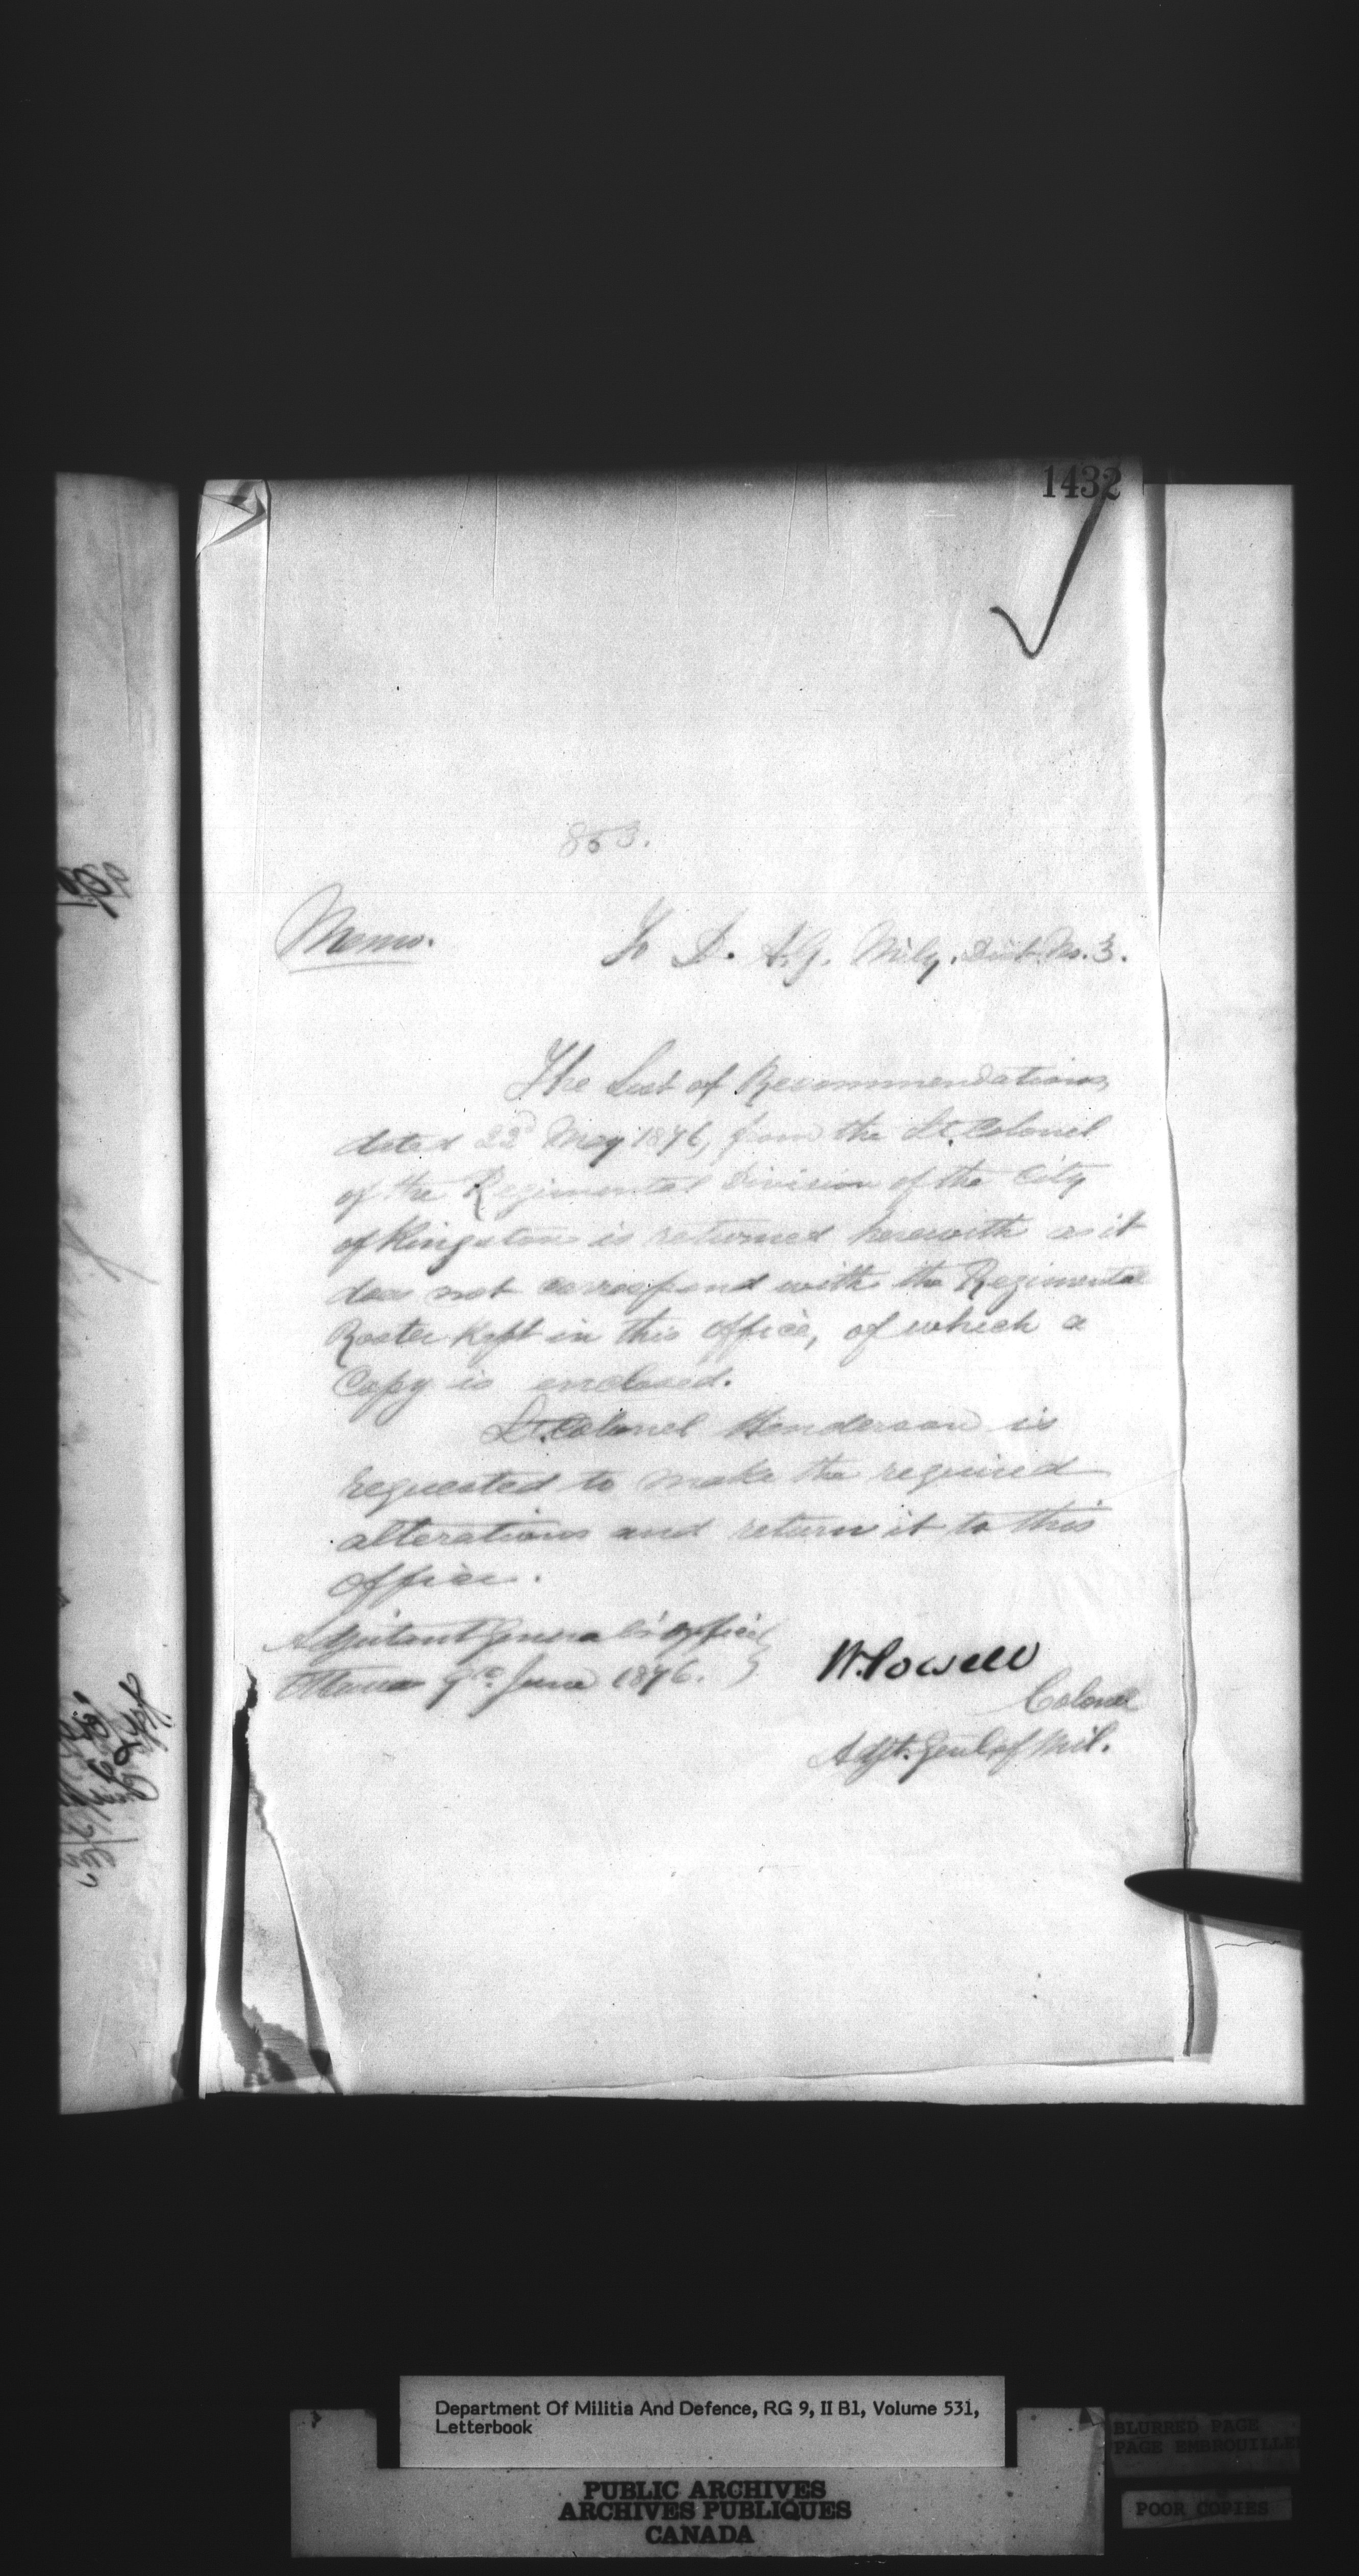 1432
853.
Memo.
To D. A. G. Mily. Dist. No. 3.
The List of Recommendations,
dated 22d May 1876, from the Lt. Colonel
of the Regimental Division of the City
of Kingston is returned herewith as it
does not correspond with the Regimental
Roster kept in this office, of which a
Copy is enclosed.
Lt. Colonel Henderson is
requested to make the required
alterations and return it to this
office.
Adjutant General's Office
Ottawa June 1876.
W. Powell
Colonel
Adjt. Genl of Mil.
Department Of Militia And Defence, RG 9, II B1, Volume 531,
Letterbook
BLURRED PAGE
PAGE EMBROUILLE
PUBLIC ARCHIVES
ARCHIVES PUBLIQUES
CANADA
POOR COPIES